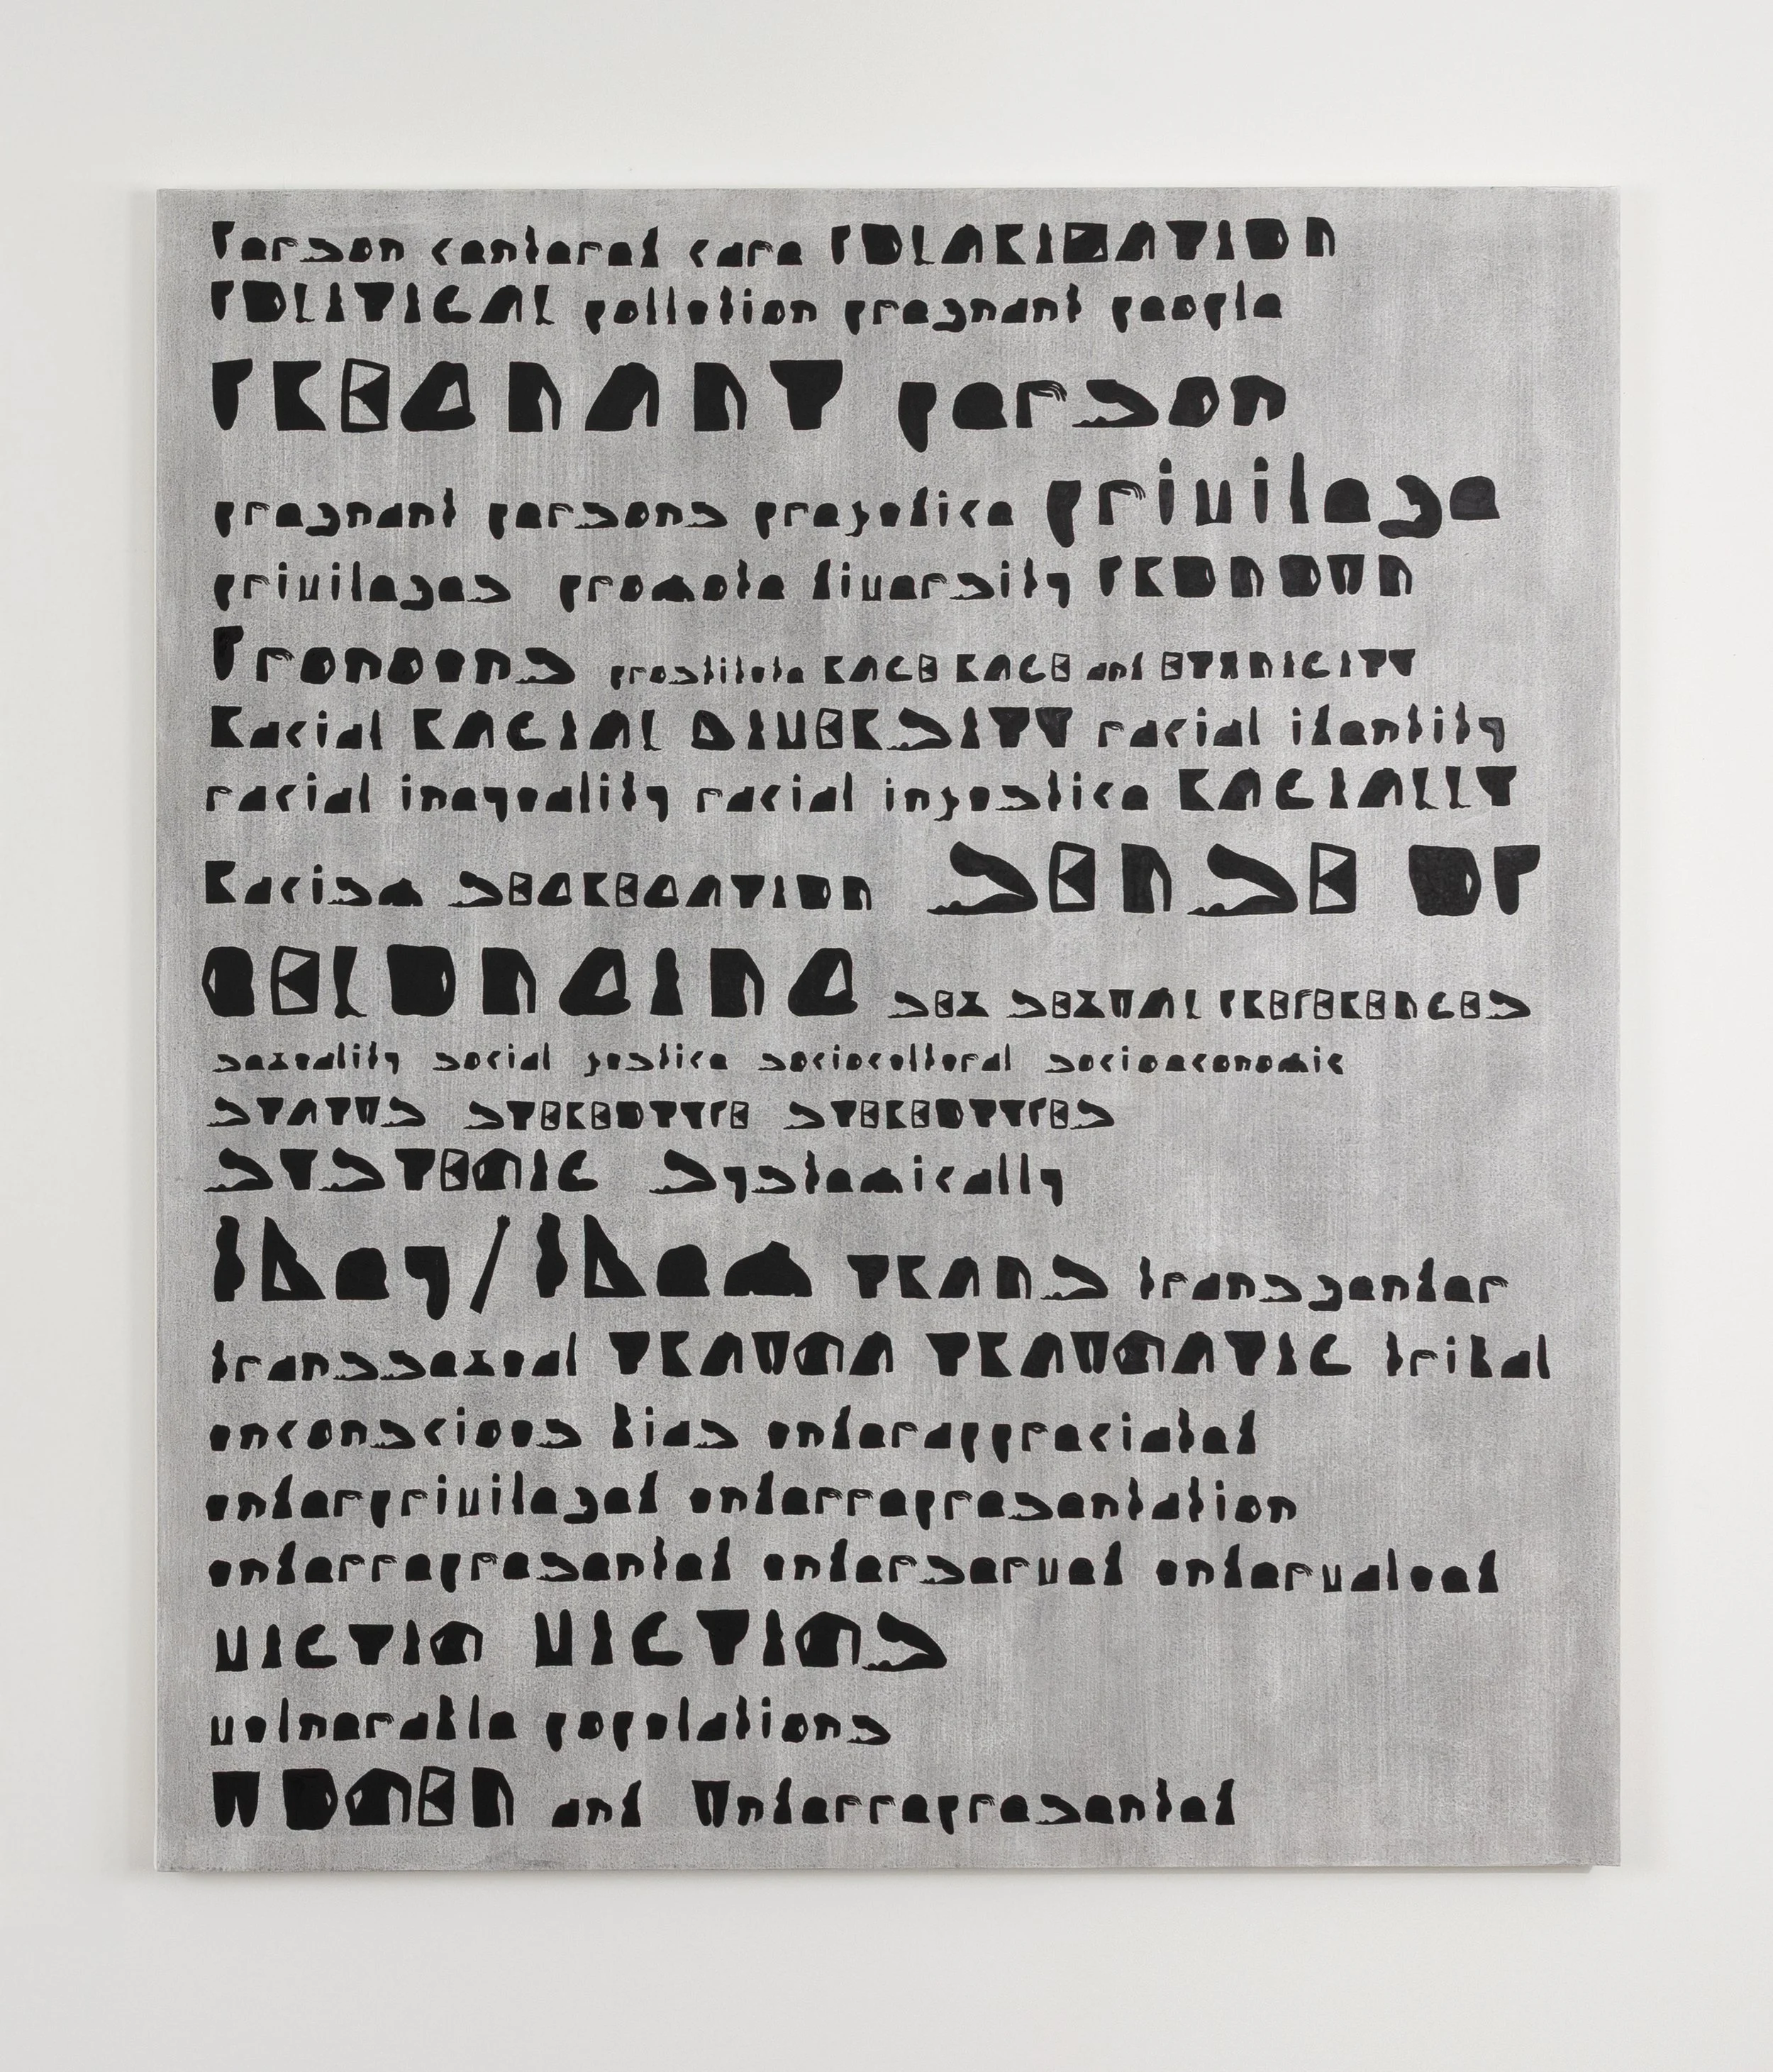 Person centered care POLARIZATION
POLITICAL pollution pregnant people
PREGNANT person
pregnant persons prejudice privilege
privileges promote diversity PRONOUN
Pronouns prostitute RACE RACE and ETHNICITY
Racial RACIAL DIVERSITY racial identity
racial inequality racial injustice RACIALLY
Racism SEGREGATION SENSE OF
BELONGING SEX SEXUAL PREFERENCES
sexuality social justice sociocultural socioeconomic
STATUS STEREOTYPE STEREOTYPES
SYSTEMIC Systemically
they/them TRANS transgender
transsexual TRAUMA TRAUMATIC tribal
unconscious bias underappreciated
underprivileged underrepresentation
underrepresented underserved undervalued
VICTIM VICTIMS
vulnerable populations
WOMEN and Underrepresented